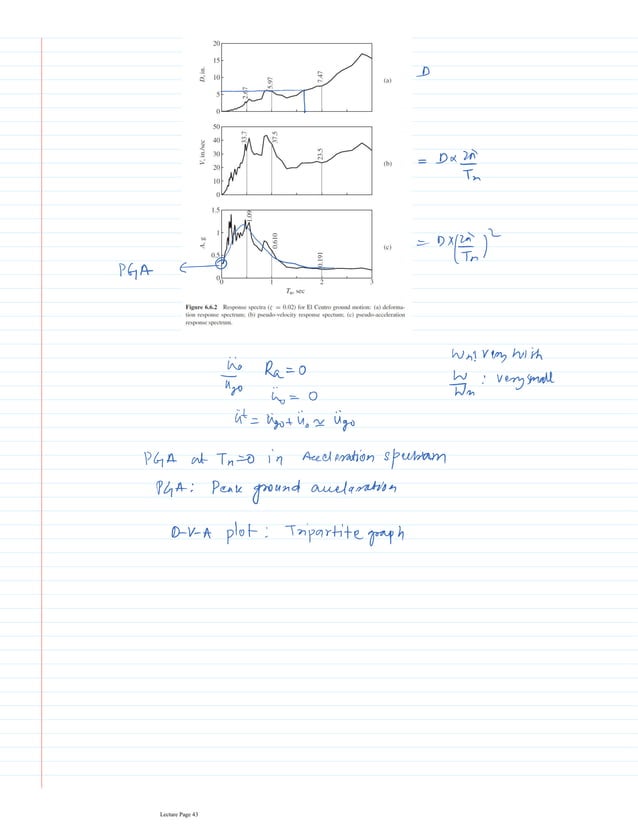 20
15
10
5
0
D, in.
2.67
5.97
7.47
(a)
D
50
40
30
20
10
0
V, in./sec
33.7
37.5
23.5
(b)
= D × 2π/Tn
1.5
1
0.5
0
A, g
1.09
0.610
0.191
(c)
= D × (2π/Tn)²
PGA
0 1 2 3
Tn, sec
Figure 6.6.2 Response spectra (ζ = 0.02) for El Centro ground motion: (a) deforma-
tion response spectrum; (b) pseudo-velocity response spectrum; (c) pseudo-acceleration
response spectrum.
ü₀/üg₀ Ra = 0
ωn: very high
ü₀ = 0
ω/ωn : very small
üᵗ = üg₀ + ü₀ ≃ üg₀
PGA at Tn=0 in Acceleration spectrum
PGA: Peak ground acceleration
D-V-A plot: Tripartite graph
Lecture Page 43